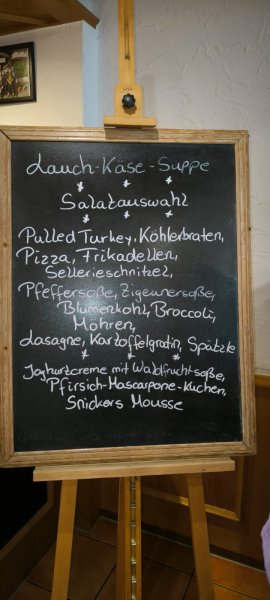 Lauch-Käse-Suppe
* * *
Salatauswahl
* * *
Pulled Turkey, Köhlerbraten,
Pizza, Trikadellen,
Sellerieschnitzel,
Pfeffersoße, Zigeunersoße,
Blumenkohl, Broccoli,
Möhren,
Lasagne, Kartoffelgratin, Spätzle
* * *
Joghurtcreme mit Waldfruchtsoße,
Pfirsich-Mascarpone-Kuchen,
Snickers Mousse